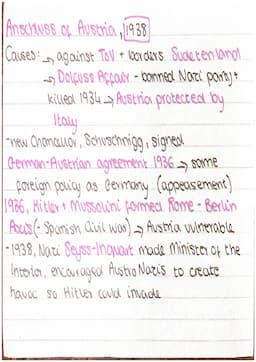 Anschluss of Austria, 1938
Causes: → against ToV + borders Sudetenland
→ Dolfuss Affair - banned Nazi party +
killed 1934 → Austria protected by
Italy
- new Chancellor, Schuschnigg, signed
German-Austrian agreement 1936 → same
foreign policy as Germany (appeasement)
1936, Hitler + Mussolini formed Rome-Berlin
Axis (- Spanish Civil War) → Austria vulnerable
- 1938, Nazi Seyss-Inquart made Minister of the
Interior, encouraged Austro Nazis to create
havoc so Hitler could invade